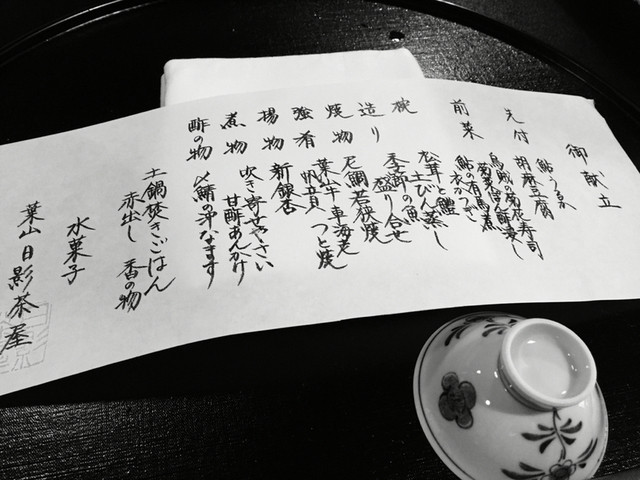 御献立
先付
鮎うるか
胡麻豆腐
前菜
烏賊の菊花寿司
菊花
鮎の有馬煮
衣かつぎ
椀
松茸と鱧
土びん蒸し
造り
季節の魚
盛り合せ
焼物
尼鯛若狭焼
強肴
葉山牛 車海老
帆立貝 つと焼
揚物
新銀杏
煮物
吹き寄せやさい
甘酢あんかけ
酢の物
〆鯖の沢なます
土鍋焚きごはん
赤出し 香の物
水菓子
葉山日影茶屋